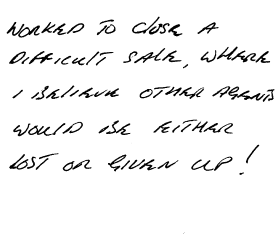 WORKED TO CLOSE A
DIFFICULT SALE, WHERE
I BELIEVE OTHER AGENTS
WOULD BE EITHER
LOST OR GIVEN UP!